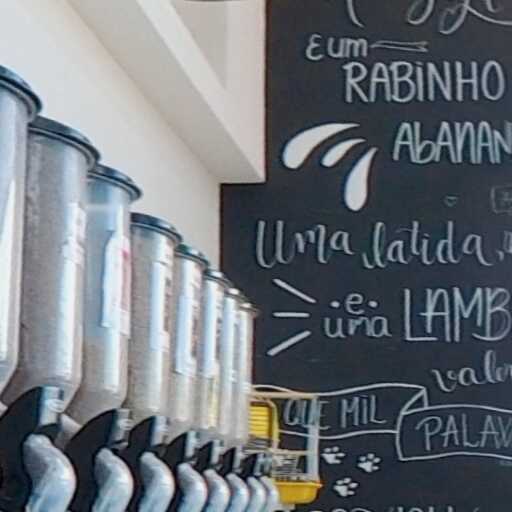 E UM
RABINHO
ABANAN
Uma latida,
e
uma LAMB
valem
QUE MIL
PALAV